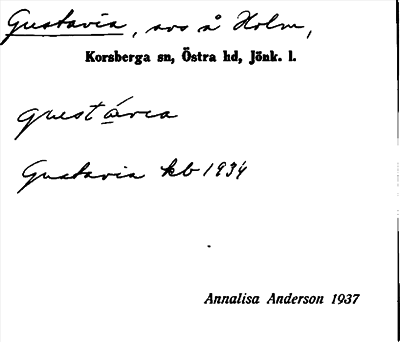 Gustavia, avs å Holm,
Korsberga sn, Östra hd, Jönk. l.
gustávia
Gustavia kb 1934
Annalisa Anderson 1937